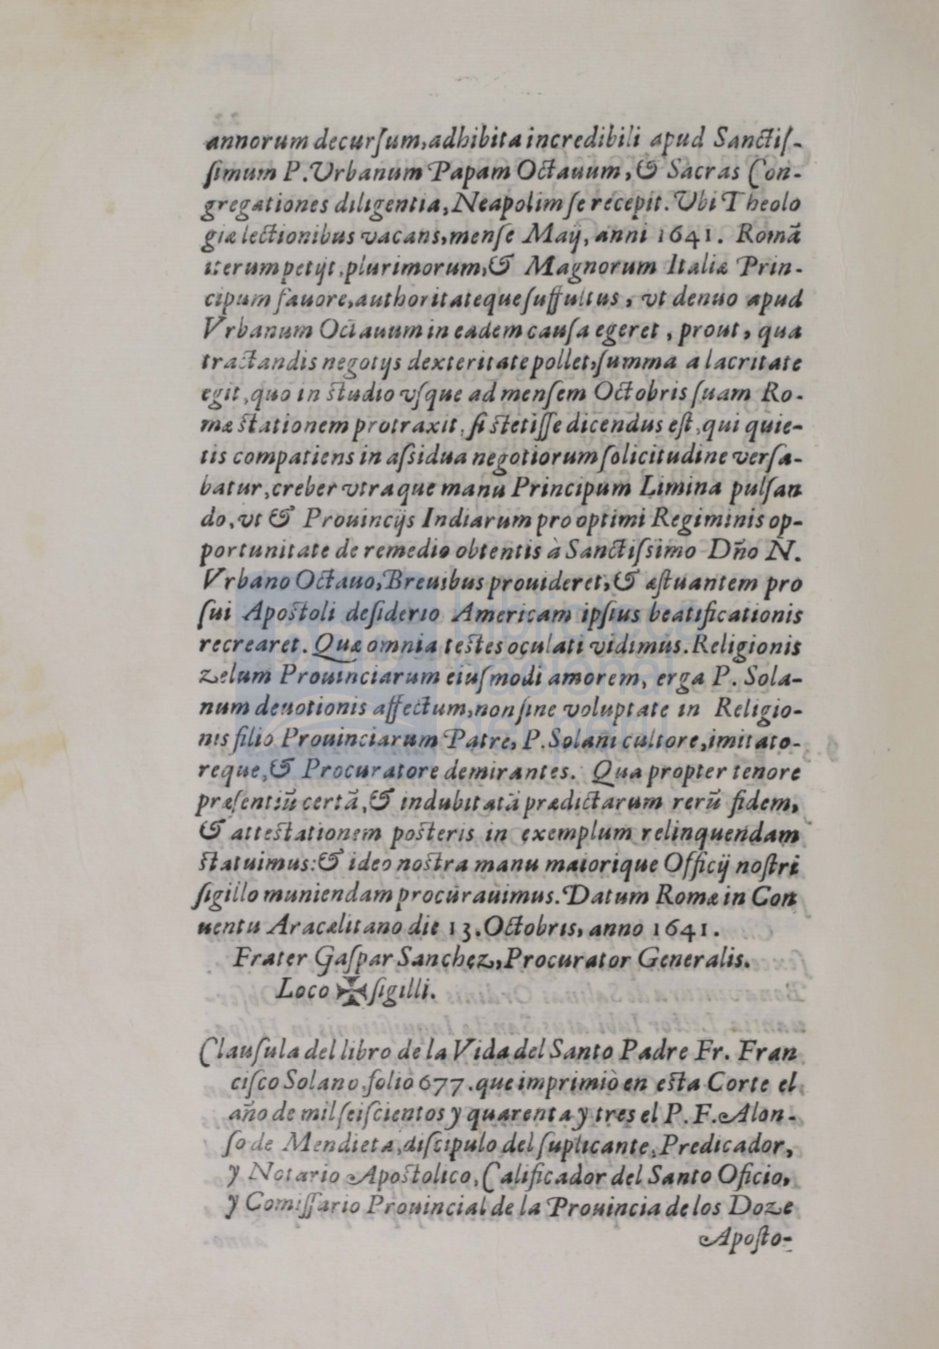 annorum decurſum, adhibita incredibili apud Sanctiſ-
ſimum P. Vrbanum Papam Octauum, & Sacras Con-
gregationes diligentia, Neapolim ſe recepit. Vbi Theolo
giæ lectionibus vacans, menſe Maij, anni 1641. Romā
iterum petijt, plurimorum, & Magnorum Italiæ Prin-
cipum fauore, authoritateque ſuffultus, vt denuo apud
Vrbanum Octauum in eadem cauſa egeret, prout, qua
tractandis negotijs dexteritate pollet, ſumma alacritate
egit, quo in ſtudio vſque ad menſem Octobris ſuam Ro-
mæ ſtationem protraxit, ſi ſtetiſſe dicendus eſt, qui quie-
tis compatiens in aſsidua negotiorum ſolicitudine verſa-
batur, creber vtraque manu Principum Limina pulſan
do, vt & Prouincijs Indiarum pro optimi Regiminis op-
portunitate de remedio obtentis à Sanctiſsimo Dño N.
Vrbano Octauo, Breuibus prouideret, & æſtuantem pro
ſui Apoſtoli deſiderio Americam ipſius beatificationis
recrearet. Quæ omnia teſtes oculati vidimus. Religionis
zelum Prouinciarum eiuſmodi amorem, erga P. Sola-
num deuotionis affectum, non ſine voluptate in Religio-
nis filio Prouinciarum Patre, P. Solani cultore, imitato-
reque, & Procuratore demirantes. Qua propter tenore
præſentiū certā, & indubitatā prædictarum rerū fidem,
& atteſtationem poſteris in exemplum relinquendam
ſtatuimus: & ideo noſtra manu maiorique Officij noſtri
ſigillo muniendam procurauimus. Datum Romæ in Con
uentu Aracælitano die 13. Octobris, anno 1641.
Frater Gaſpar Sanchez, Procurator Generalis.
Loco ✠ ſigilli.
Clauſula del libro de la Vida del Santo Padre Fr. Fran
ciſco Solano, folio 677. que imprimiò en eſta Corte el
año de mil ſeiſcientos y quarenta y tres el P. F. Alon-
ſo de Mendieta, diſcipulo del ſuplicante, Predicador,
y Notario Apoſtolico, Calificador del Santo Oficio,
y Comiſſario Prouincial de la Prouincia de los Doze
Apoſto-